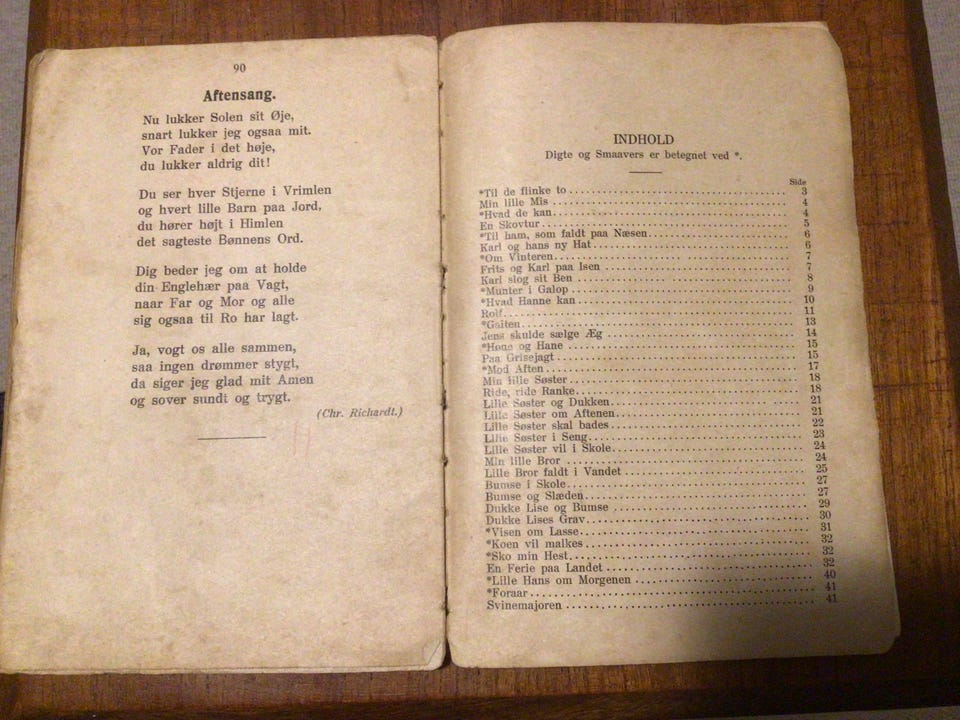 90
Aftensang.
Nu lukker Solen sit Øje,
snart lukker jeg ogsaa mit.
Vor Fader i det høje,
du lukker aldrig dit!
Du ser hver Stjerne i Vrimlen
og hvert lille Barn paa Jord,
du hører højt i Himlen
det sagteste Bønnens Ord.
Dig beder jeg om at holde
din Englehær paa Vagt,
naar Far og Mor og alle
sig ogsaa til Ro har lagt.
Ja, vogt os alle sammen,
saa ingen drømmer stygt,
da siger jeg glad mit Amen
og sover sundt og trygt.
(Chr. Richardt.)
INDHOLD
Digte og Smaavers er betegnet ved *.
Side
*Til de flinke to 3
Min lille Mis 4
*Hvad de kan 4
En Skovtur 5
*Til ham, som faldt paa Næsen 6
Karl og hans ny Hat 6
*Om Vinteren 7
Frits og Karl paa Isen 7
Karl slog sit Ben 8
*Munter i Galop 9
*Hvad Hanne kan 10
Rolf 11
*Gaiten 13
Jens skulde sælge Æg 14
*Høne og Hane 15
Paa Grisejagt 15
*Mod Aften 17
Min lille Søster 18
Ride, ride Ranke 18
Lille Søster og Dukken 21
Lille Søster om Aftenen 21
Lille Søster skal bades 22
Lille Søster i Seng 23
Lille Søster vil i Skole 24
Min lille Bror 24
Lille Bror faldt i Vandet 25
Bumse i Skole 27
Bumse og Slæden 27
Dukke Lise og Bumse 29
Dukke Lises Grav 30
*Visen om Lasse 31
*Koen vil malkes 32
*Sko min Hest 32
En Ferie paa Landet 32
*Lille Hans om Morgenen 40
*Foraar 41
Svinemajoren 41